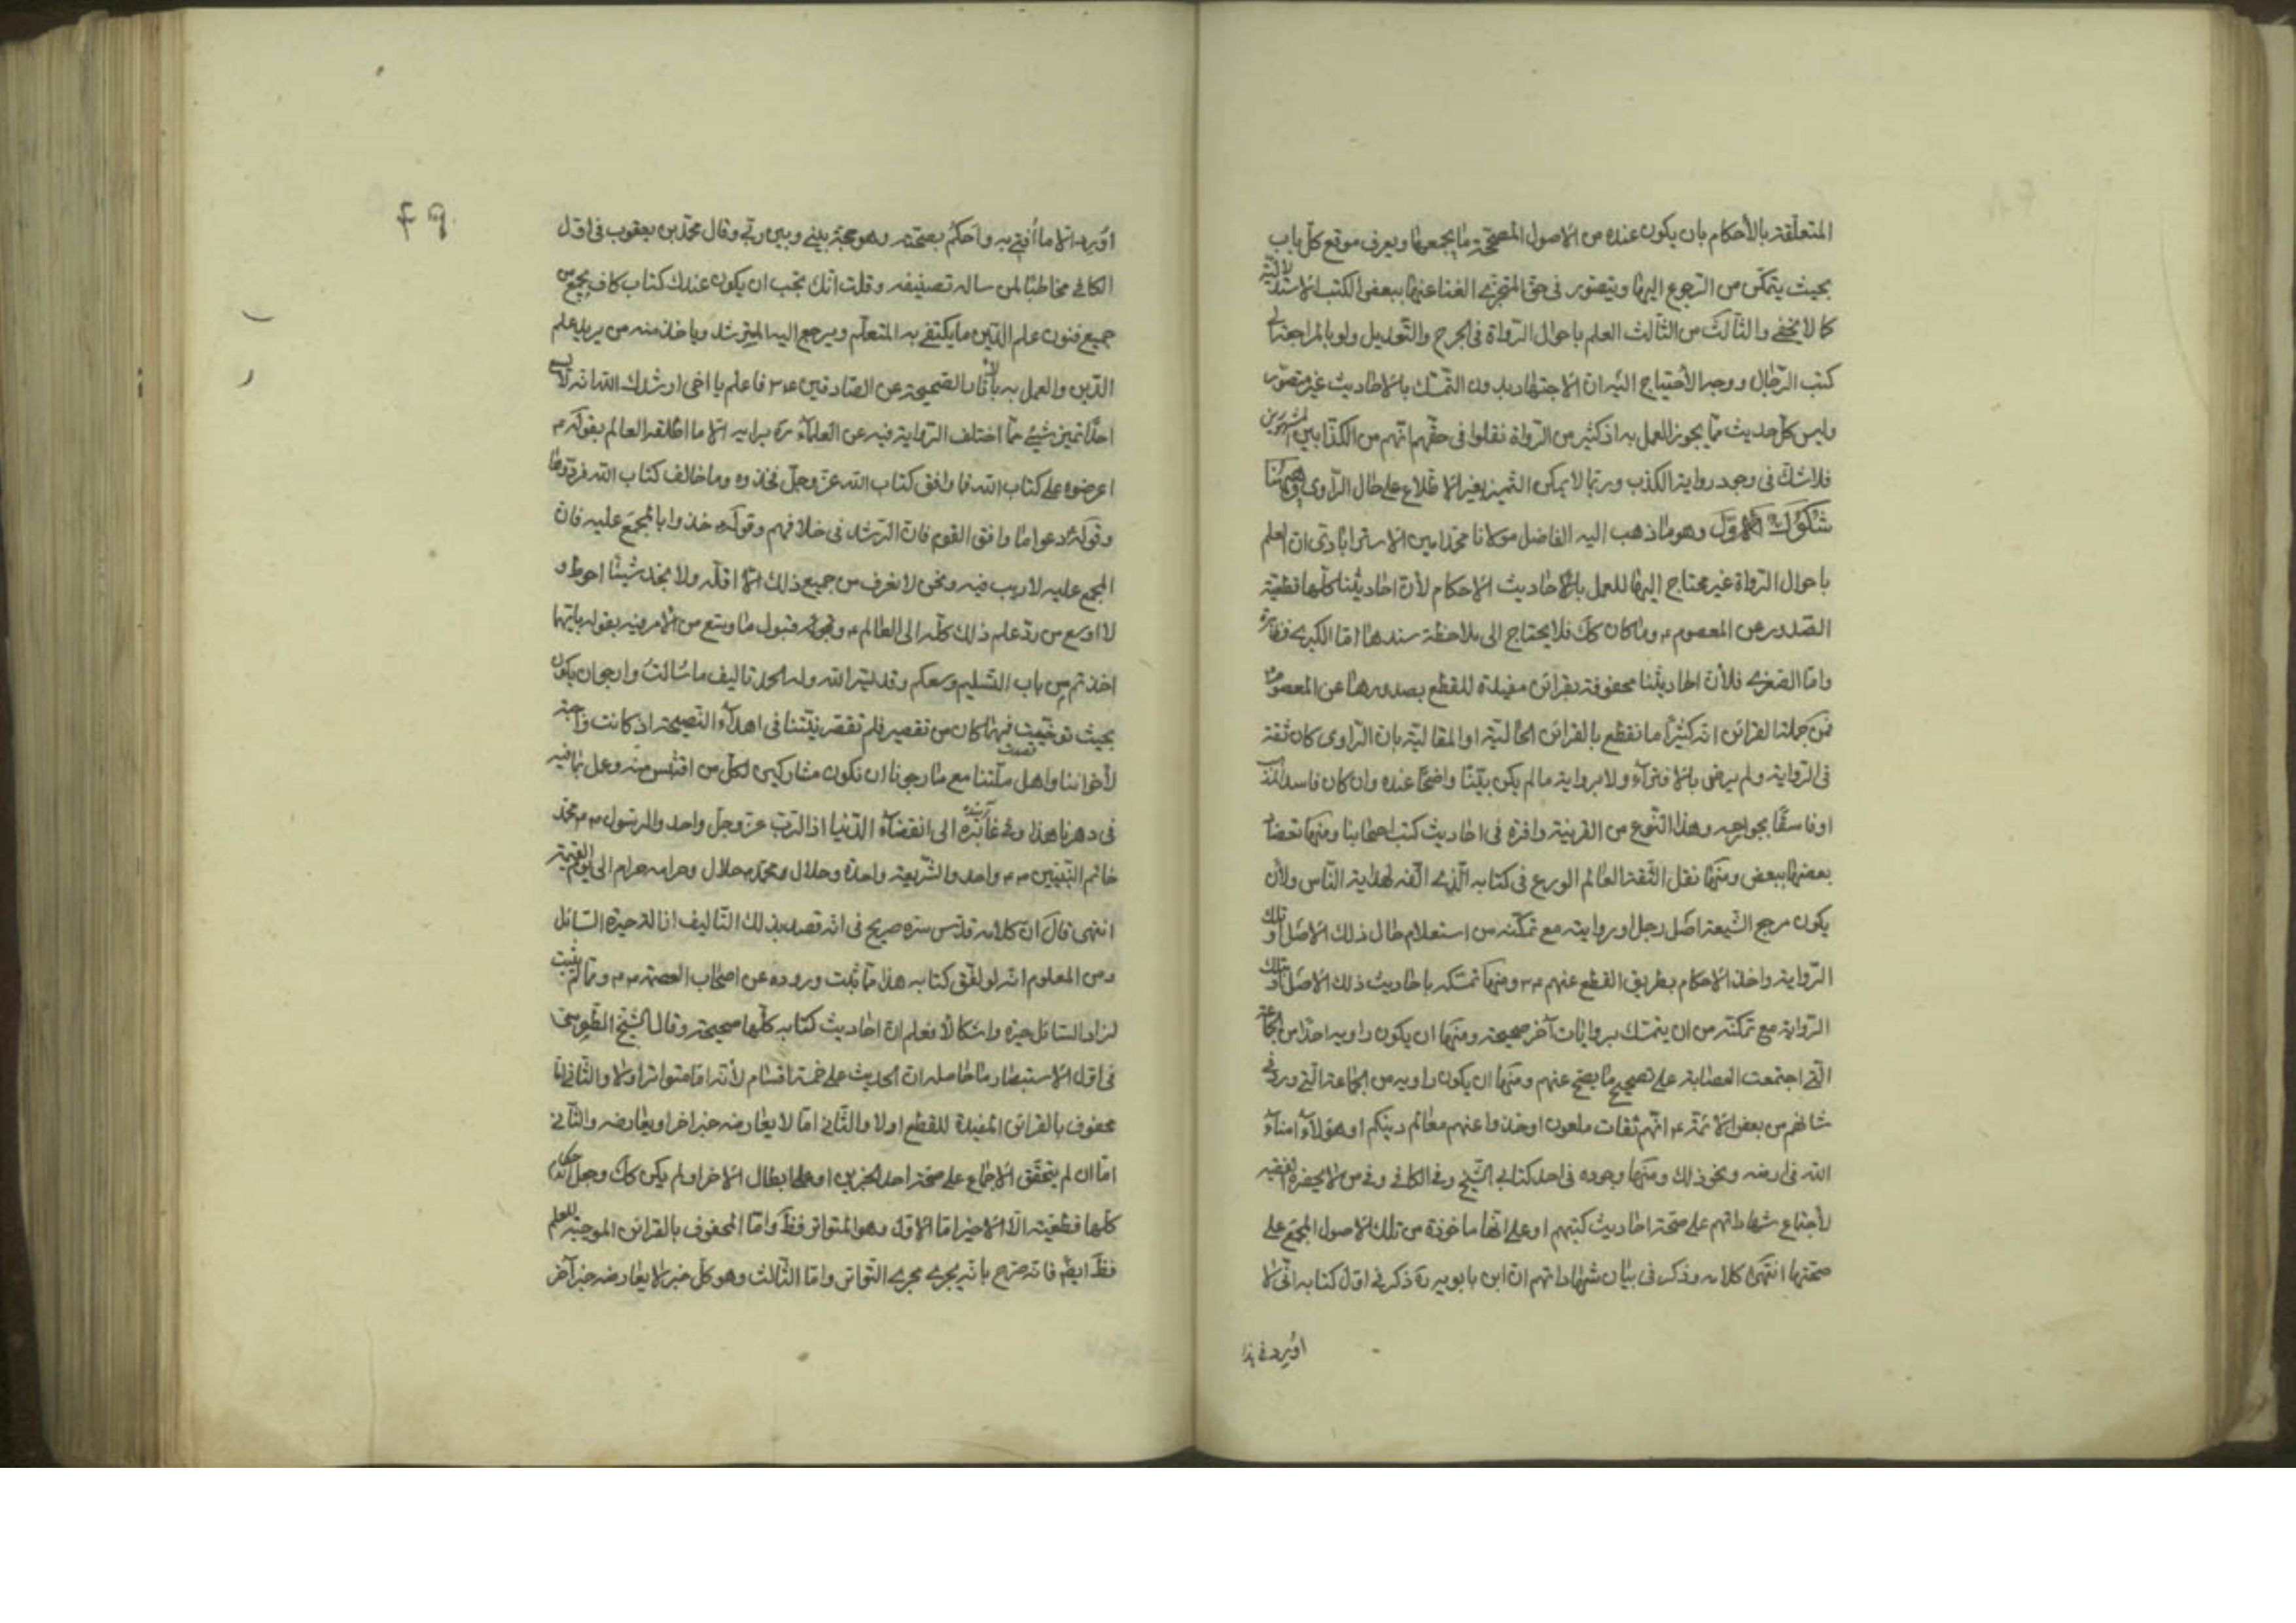 المتعلّقة بالأحكام بان يكون عنده من الاصول المصحّحة ما يجمعها ويعرف موقع كلّ باب
بحيث يتمكّن من الرّجوع اليها ويتصوّر فى حقّ المتجزّى الغنا عنها ببعض الكتب الاستدلاليّة
كما لا يخفى والثّالث من الثّالث العلم باحوال الرّواة فى الجرح والتّعديل ولو بالمراجعة الى
كتب الرّجال ووجه الأحتياج اليه ان الاجتهاد بدون التمسّك بالاحاديث غير متصوّر
وليس كلّ حديث ممّا يجوز العمل به اذ كثير من الرّواة نقلوا فى حقّهم انّهم من الكذّابين المشهورين
فلا شكّ فى وجود رواية الكذب وربّما لا يمكن التميز بغير الاطّلاع على حال الرّاوى وههنا
شكوك الاوّل وهو ما ذهب اليه الفاضل مولانا محمّد امين الاسترابادى ان العلم
باحوال الرّواة غير محتاج اليها للعمل بالاحاديث الاحكام لأن احاديثنا كلّها قطعيّة
الصّدور عن المعصوم ع وما كان كك فلا يحتاج الى ملاحظة سندها امّا الكبرى فظاهرة
وامّا الصّغرى فلأن احاديثنا محفوفة بقرائن مفيدة للقطع بصدورها عن المعصوم ع
فمن جملة القرائن انه كثيرًا ما نقطع بالقرائن الحاليّة او المقاليّة بان الرّاوى كان ثقة
فى الرّواية ولم يرض بالافتراء ولا برواية مالم يكن بيّنًا واضحًا عنده وان كان فاسد المذهب
او فاسقًا بجوارحه وهذا النّوع من القرينة وافرة فى احاديث كتب اصحابنا ومنها تعضد
بعضها ببعض ومنها نقل الثّقة العالم الورع فى كتابه الّذى الّفه لهداية النّاس ولأن
يكون مرجع الشّيعة اصل رجل او روايته مع تمكّنه من استعلام حال ذلك الاصل او تلك
الرّواية واخذ الاحكام بطريق القطع عنهم ع ومنها تمسّكه باحاديث ذلك الاصل او تلك
الرّواية مع تمكّنه من ان يتمسّك بروايات آخر صحيحة ومنها ان يكون راويه احدًا من الجماعة
الّتى اجتمعت العصابة على تصحيح ما يصحّ عنهم ومنها ان يكون راويه من الجماعة الّتى ورد فى
شانهم من بعض الائمّة ع انّهم ثقات مامون او خذوا عنهم معالم دينكم او هؤلاء امناء
الله فى ارضه ونحو ذلك ومنها وجوده فى احد كتابى الشّيخ وفى الكافى وفى من لا يحضره الفقيه
لأجتماع شهاداتهم على صحّة احاديث كتبهم او على انّها ماخوذة من تلك الاصول المجمع على
صحّتها انتهى كلامه وذكر فى بيان شهاداتهم ان ابن بابويه ره ذكر فى اوّل كتابه انّى لا
اورد فى هذا
۴۹
اورد الّا ما اُفتى به واَحكُمُ بصحّته وهو حجّة بينى وبين ربّى وقال محمّد بن يعقوب فى اوّل
الكافى مخاطبًا لمن ساله تصنيفه وقلت انّك تحبّ ان يكون عندك كتاب كاف يجمع من
جميع فنون علم الدّين ما يكتفى به المتعلّم ويرجع اليه المسترشد وياخذ منه من يريد علم
الدّين والعمل به بالآثار الصّحيحة عن الصّادقين ع فاعلم يا اخى ارشدك الله انّه لا يسع
احدًا تميز شيئ ممّا اختلف الرّواية فيه عن العلماء ع برايه الّا ما اطلقه العالم بقوله ع
اعرضوه على كتاب الله فما وافق كتاب الله عزّ وجلّ فخذوه وما خالف كتاب الله فردّوه
وقوله ع دعوا ما وافق القوم فان الرّشد فى خلافهم وقوله ع خذوا بالمجمع عليه فان
المجمع عليه لا ريب فيه ونحن لا نعرف من جميع ذلك الّا اقلّه ولا نجد شيئًا احوط و
لا اوسع من ردّ علم ذلك كلّه الى العالم ع وقبول ما وسّع من الامر فيه بقوله بايّهما
اخذتم من باب التّسليم وسعكم وقد يسّر الله وله الحمد تاليف ما سُالتَ وارجو ان يكون
بحيث توخّيت فمهما كان من تقصير فلم تقصر نيّتنا فى اهداء النّصيحة اذ كانت واجبة
لأخواننا واهل ملّتنا مع ما رجونا ان نكون مشاركين لكلّ من اقتبس منه وعمل بما فيه
فى دهرنا هذا وفى غابره الى انقضاء الدّنيا اذ الرّبّ عزّ وجلّ واحد والرّسول محمّد
خاتم النّبيّين واحد والشّريعة واحدة وحلال محمّد حلال وحرامه حرام الى يوم القيمة
انتهى قال ان كلامه قدّس سرّه صريح فى انّه قصد بذلك التّاليف ازالة حيرة السّائل
ومن المعلوم انّه لو لفّق كتابه هذا ممّا ثبت وروده عن اصحاب العصمة ع وممّا لم يثبت
لزاد السّائل حيرة واشكالًا فعلم ان احاديث كتابه كلّها صحيحة وقال الشّيخ الطّوسى
فى اوّل الاستبصار ما حاصله ان الحديث على خمسة اقسام لأنه امّا متواتر اولا والثّانى امّا
محفوف بالقرائن المفيدة للقطع اولا والثّانى امّا لا يعارضه خبر اخر او يعارضه والثّانى
امّا ان لم يتحقّق الاجماع على صحّة احد الخبرين او على ابطال الاخر او لم يكن كك وجعل
كلّها قطعيّة الّا الاخير امّا الاوّل وهو المتواتر فظ وامّا المحفوف بالقرائن الموجبة للعلم
فظ ايضًا فانه صرّح بانّه يجرى مجرى التّواتر وامّا الثّالث وهو كلّ خبر لا يعارضه خبر آخر